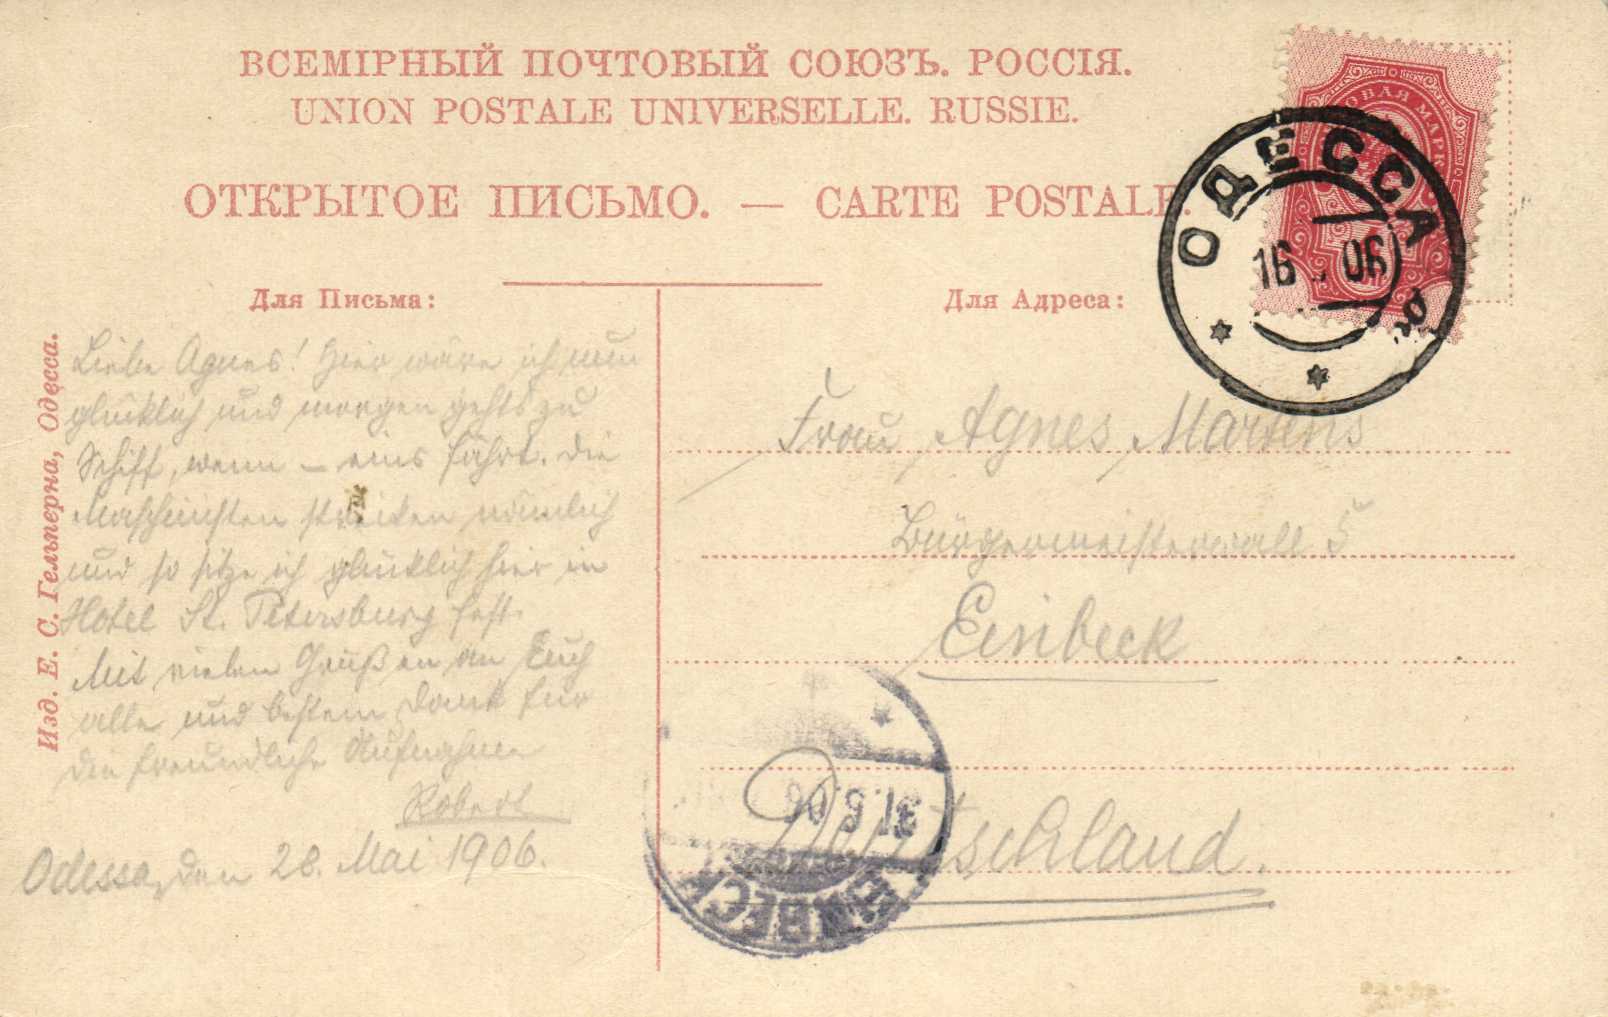 ВСЕМІРНЫЙ ПОЧТОВЫЙ СОЮЗЪ. РОССІЯ.
UNION POSTALE UNIVERSELLE. RUSSIE.
ОТКРЫТОЕ ПИСЬМО. — CARTE POSTALE.
ОДЕССА
16 06
Для Письма:
Для Адреса:
Изд. Е. С. Гельперна, Одесса.
Liebe Agnes! Hier wäre ich nun
glücklich und morgen gehts zu
Schiff, wenn – eins fährt. Die
Maschinisten streiken nämlich
und so sitze ich glücklich hier in
Hotel St. Petersburg fest.
Mit vielen Grüßen an Euch
alle und bestem Dank für
die freundliche Aufnahme
Robert
Odessa, den 28. Mai 1906.
Frau Agnes Martens
Bürgermeisterwall 5
Einbeck
Deutschland.
EINBECK
31.5.06